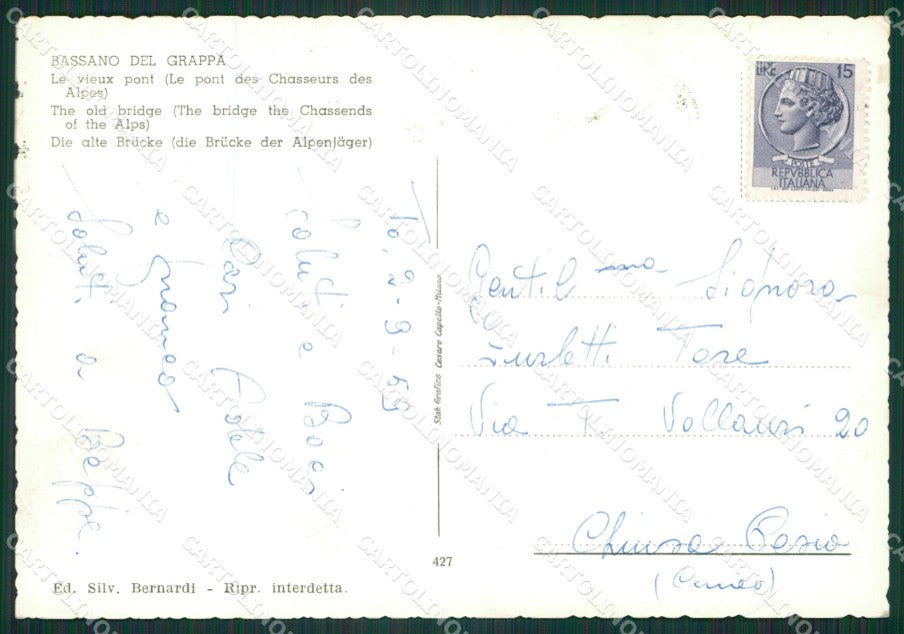 BASSANO DEL GRAPPA
Le vieux pont (Le pont des Chasseurs des
Alpes)
The old bridge (The bridge the Chassends
of the Alps)
Die alte Brücke (die Brücke der Alpenjäger)
LIRE 15
POSTE
REPVBBLICA
ITALIANA
To, 2-9-59
Saluti e Baci
Cari
e Franco
Saluti a Beppe.
Stab Grafico Cesare Capello-Milano
Gentil ma Signora
Tore
Via F Vallauri 20
Chiusa Pesio
(Cuneo)
427
Ed. Silv. Bernardi - Ripr. interdetta.
CARTOLINOMANIA